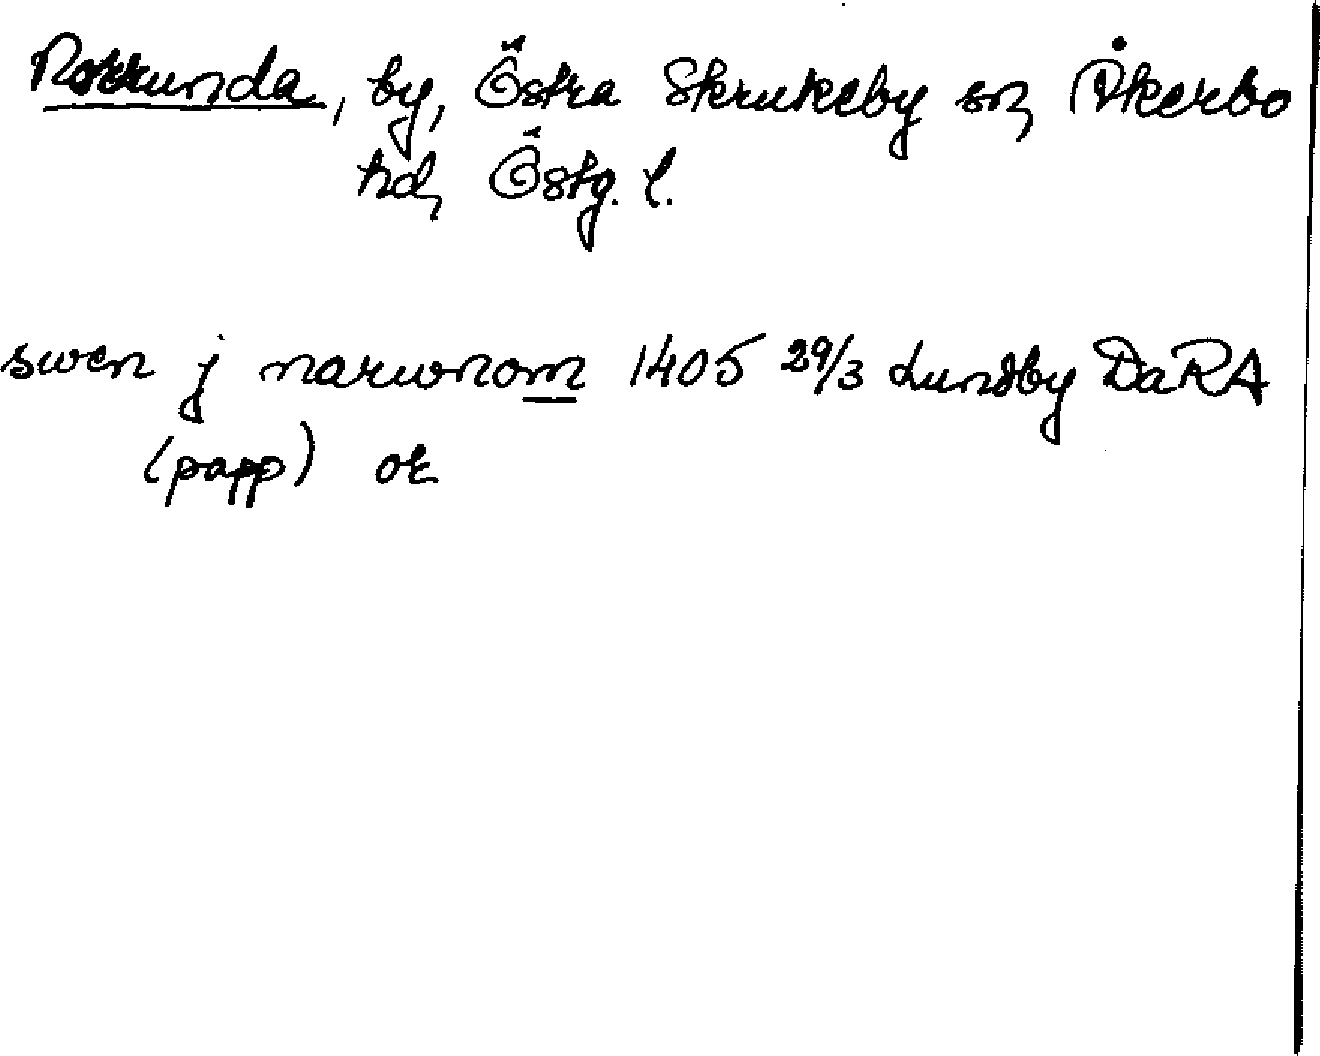 Norrunda, by, Östra Skrukeby sn, Åkerbo
hd, Östg. l.
swen j narwnom 1405 29/3 Lundby DaRA
(papp) or